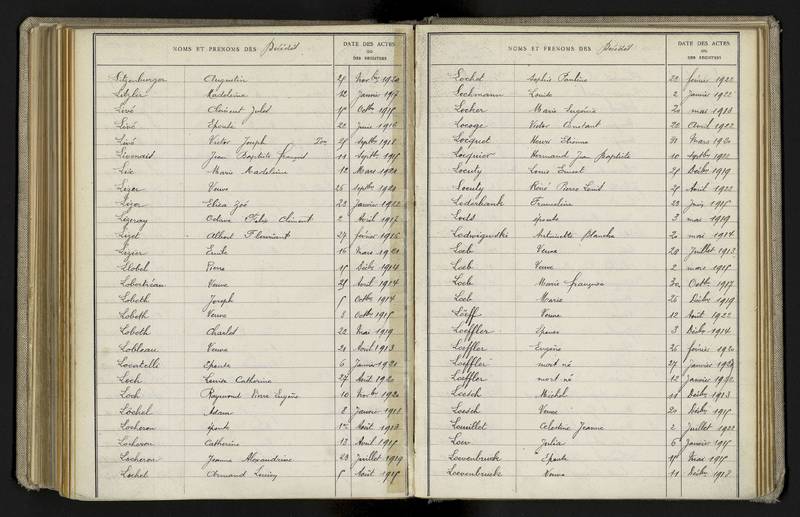 NOMS ET PRENOMS DES Décédés
DATE DES ACTES
OU
DES REGISTRES
Litzenburger Augustin 25 Novbre 1920
Litzler Madeleine 12 Janvier 1917
Livé Clément Jules 15 Octbre 1915
Livé Epouse 22 Juin 1916
Livé Victor Joseph 25 Septbre 1918
Livonais Jean Baptiste François 11 Septbre 1915
Lix Marie Madeleine 12 Mars 1920
Lizer Veuve 26 Septbre 1920
Lizer Eliza Zoé 23 Janvier 1922
Lizeray Octave Félix Clément 2 Avril 1917
Lizet Albert Florissant 27 février 1916
Lizier Emile 16 Mars 1920
Llobel Pierre 15 Décbre 1914
Lobertréau Veuve 25 Avril 1914
Lobeth Joseph 5 Octbre 1914
Lobeth Veuve 8 Octbre 1915
Lobeth Charles 22 Mai 1919
Lobleau Veuve 21 Avril 1913
Locatelli Epouse 6 Janvier 1920
Loch Louise Catherine 27 Avril 1920
Loch Raymond Pierre Eugène 10 Novbre 1920
Löchel Adam 8 Janvier 1918
Locheron épouse Août 1913
Locheron Catherine 13 Avril 1915
Locheron Jeanne Alexandrine 23 Juillet 1919
Lochet Armand 5 Août 1915
NOMS ET PRENOMS DES Décédés
DATE DES ACTES
OU
DES REGISTRES
Lochet Sophie Pauline 22 février 1922
Lochmann Louise 2 Janvier 1922
Locher Marie Eugénie 20 mai 1913
Locoge Victor Constant 20 Avril 1922
Locquet Henri Etienne 31 Mars 1920
Locquier Hermand Jean Baptiste 10 Septbre 1922
Loculy Louis Ernest 25 Décbre 1919
Loculy Réné Pierre Louis 25 Avril 1922
Loderbank Franceline 23 Juin 1915
Lods épouse 3 mai 1919
Lodwigowski Antoinette Blanche 20 mai 1914
Loeb Veuve 28 Juillet 1913
Loeb Veuve 2 mars 1915
Loeb Marie françoise 30 Octbre 1917
Loeb Marie 26 Décbre 1919
Löeff Veuve 12 Août 1922
Loeffler Epouse 3 Décbre 1914
Loeffler Eugène 26 février 1920
Loeffler mort né 27 janvier 1920
Loeffler mort né 12 Janvier
Loesch Michel 11 Décbre 1913
Loesch Veuve 20 Décbre 1915
Loeuillet Celestine Jeanne 2 Juillet 1922
Loew Julie 6 Janvier 1915
Loewenbruck Epouse 15 Mai 1915
Loevenbruck Veuve 11 Décbre 1918